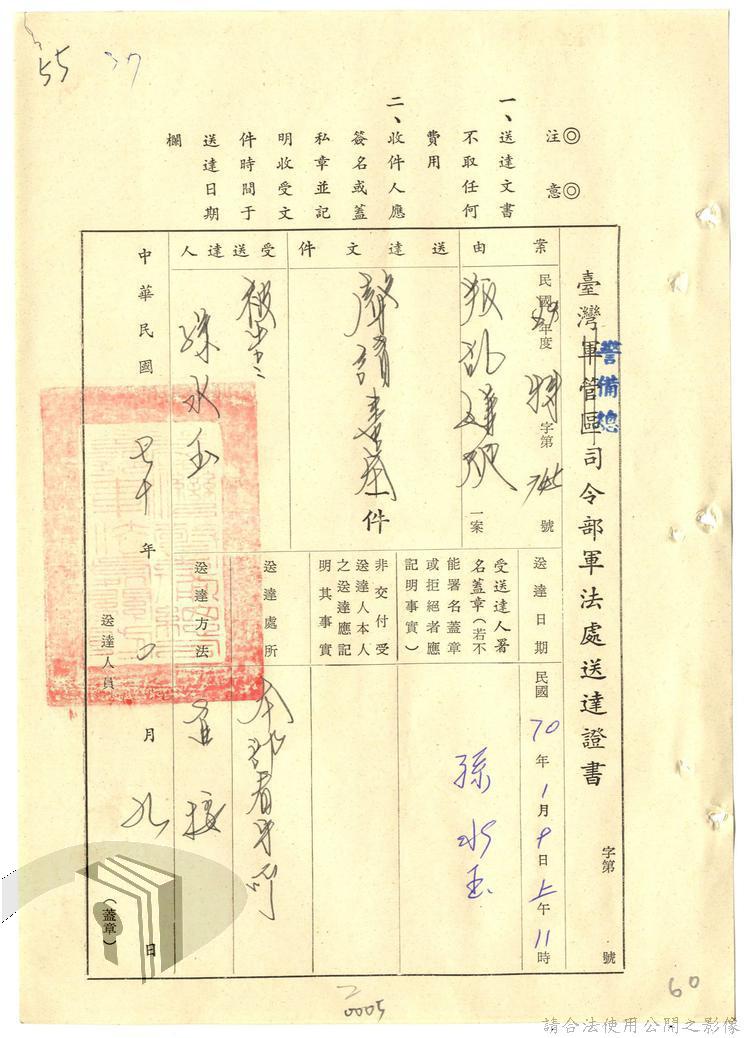 55
◎注意◎
一、送達文書
不取任何
費用
二、收件人應
簽名或蓋
私章並記
明收受文
件時間于
送達日期
欄
臺灣軍管區司令部軍法處送達證書
警備總
字第 號
案由
民國69年度 特 字第 號
叛亂嫌疑 一案
送達文件
聲請書 件
受送達人
被告
孫水玉
送達日期
民國70年1月9日上午11時
受送達人署
名蓋章(若不
能署名蓋章
或拒絕者應
記明事實)
孫水玉
非交付受
送達人本人
之送達應記
明其事實
送達處所
本部看守所
送達方法
直接
中華民國七十年 月九日
送達人員
(蓋章)
0005
60
請合法使用公開之影像